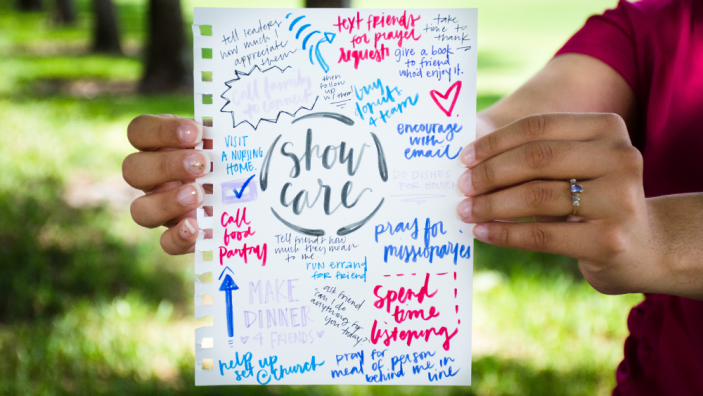 tell leaders
how much I
appreciate
them
text friends
for prayer
requests
take
time to
thank
give a book
to friend
who'd enjoy it.
then
follow
up
w/ them!
Call family
to connect
buy
donuts
4 team
encourage
with
email
VISIT
A NURSING
HOME.
show
care
DO DISHES
FOR
Call
food
pantry
Tell friends how
much they mean
to me
pray for
missionaries
run errand
for friend
MAKE
DINNER
4 FRIENDS
ask friend
"can I do
anything for
you today?"
spend
time
listening
help up
set @ church
pray for
meal of person
behind me in
line